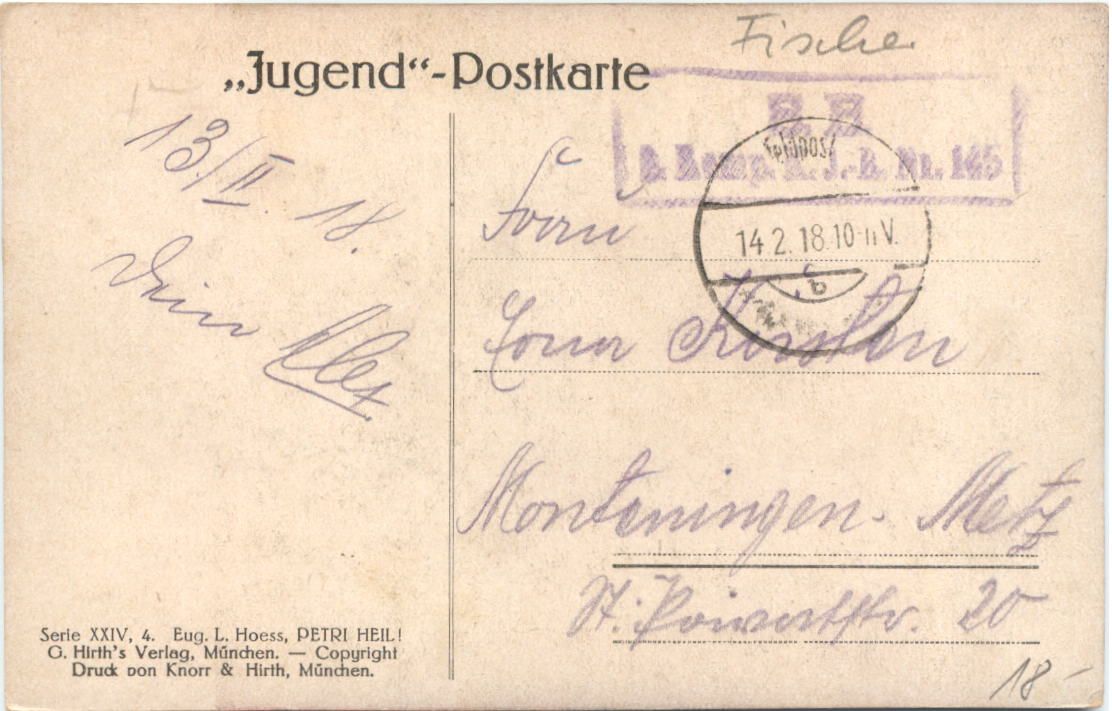 Fische
„Jugend“-Postkarte
S. B.
Komp. J.-R. Nr. 145
Feldpost
14.2.18.10-11V.
b
13/II. 18.
Dein Alex.
Frau
Kirsten
Monteningen. Metz
St. 20
Serie XXIV, 4. Eug. L. Hoess, PETRI HEIL!
G. Hirth's Verlag, München. — Copyright
Druck von Knorr & Hirth, München.
18-